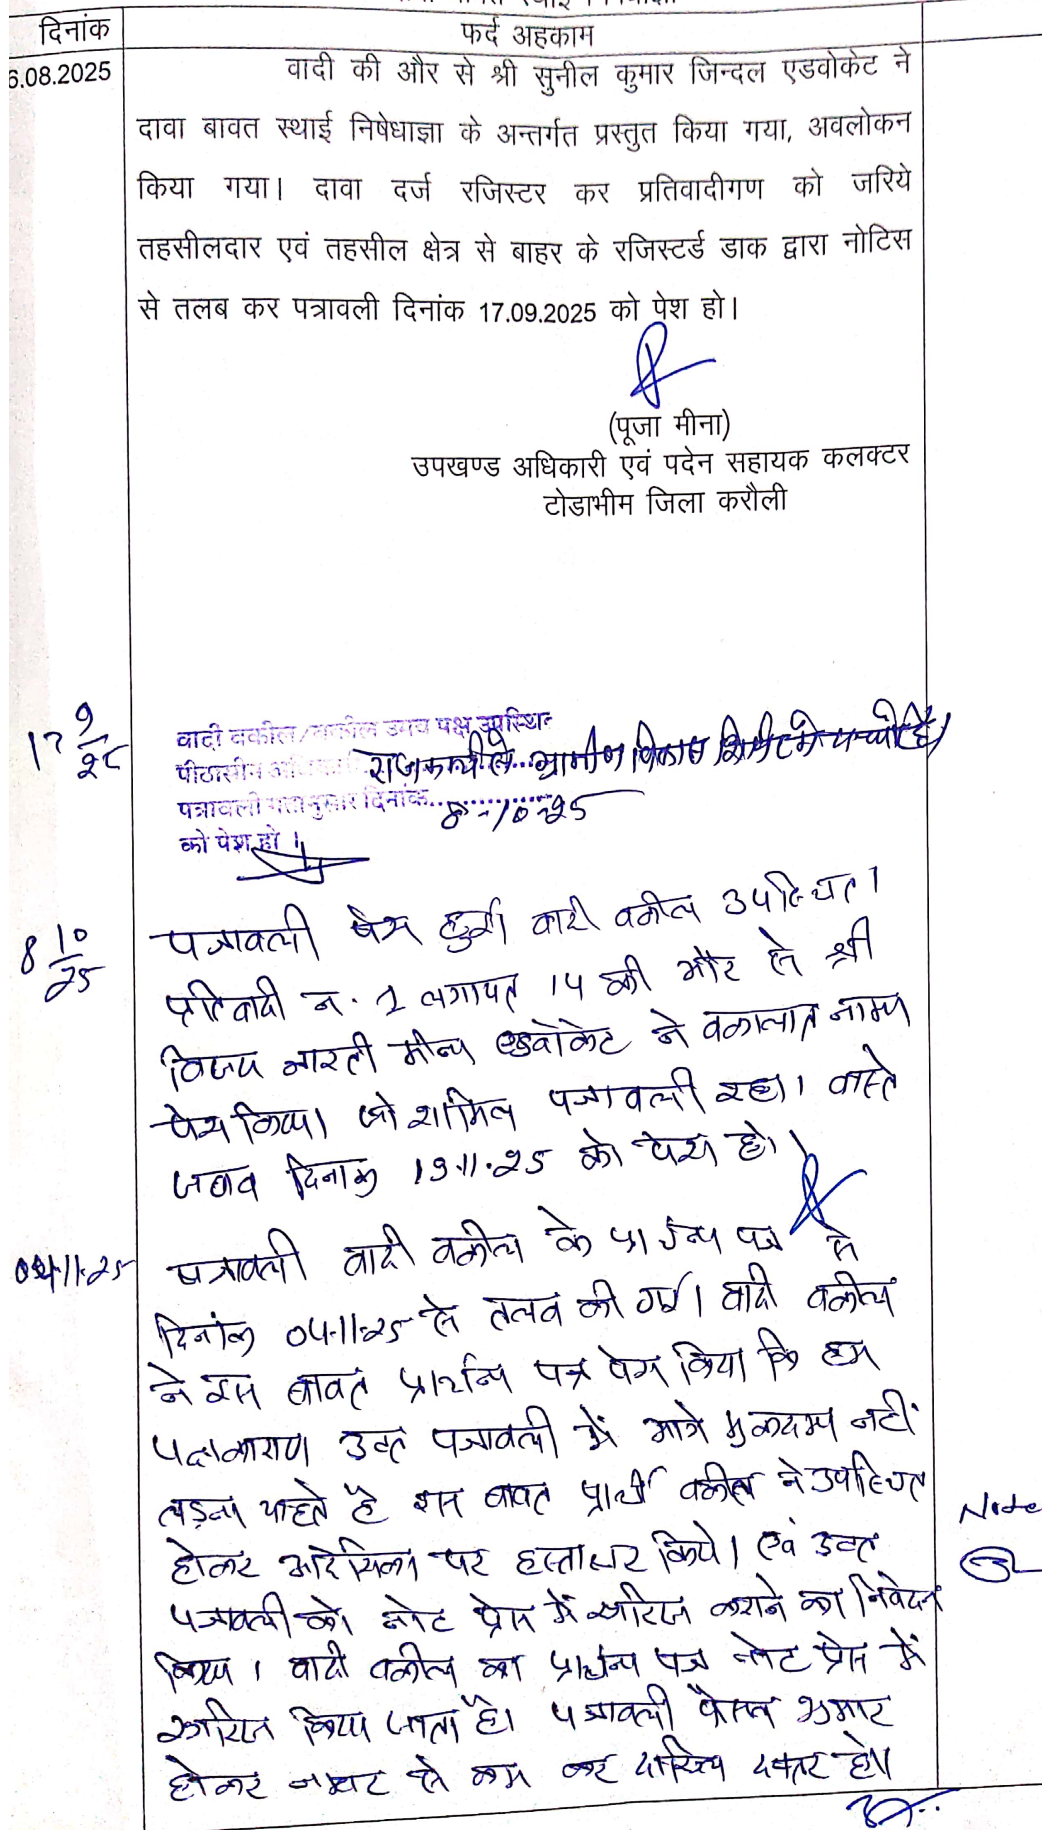 दिनांक
फर्द अहकाम
6.08.2025
वादी की और से श्री सुनील कुमार जिन्दल एडवोकेट ने
दावा बावत स्थाई निषेधाज्ञा के अन्तर्गत प्रस्तुत किया गया, अवलोकन
किया गया। दावा दर्ज रजिस्टर कर प्रतिवादीगण को जरिये
तहसीलदार एवं तहसील क्षेत्र से बाहर के रजिस्टर्ड डाक द्वारा नोटिस
से तलब कर पत्रावली दिनांक 17.09.2025 को पेश हो।
(पूजा मीना)
उपखण्ड अधिकारी एवं पदेन सहायक कलक्टर
टोडाभीम जिला करौली
17 9
वादी वकील/वकील उभय पक्ष उपस्थित
पीठासीन राजकार्य से ग्रामीण विकास शिविर में
पत्रावली दिनांक 8-10-25
को पेश हो।
8 10/25
पत्रावली पेश हुई। वादी वकील उपस्थित।
प्रतिवादी न. 1 लगायत 14 की और से श्री
विजय भारती मीना एडवोकेट ने वकालात नामा
पेश किया। जो शामिल पत्रावली रहा। वास्ते
जबाव दिनांक 19.11.25 को पेश हो।
04.11.25
पत्रावली वादी वकील के प्रार्थना पत्र से
दिनांक 04.11.25 से तलब की गई। वादी वकील
ने इस बावत प्रार्थना पत्र पेश किया कि हम
पक्षकारान उक्त पत्रावली में आगे मुकदमा नहीं
लड़ना चाहते है इस बावत प्रार्थी वकील ने उपस्थित
होकर आदेशिका पर हस्ताक्षर किये। एवं उक्त
पत्रावली को नोट प्रेस में खारिज कराने का निवेदन
किया। वादी वकील का प्रार्थना पत्र नोट प्रेस में
खारिज किया जाता है। पत्रावली फैसल शुमार
होकर नम्बर से कम कर दाखिल दफ्तर हो।